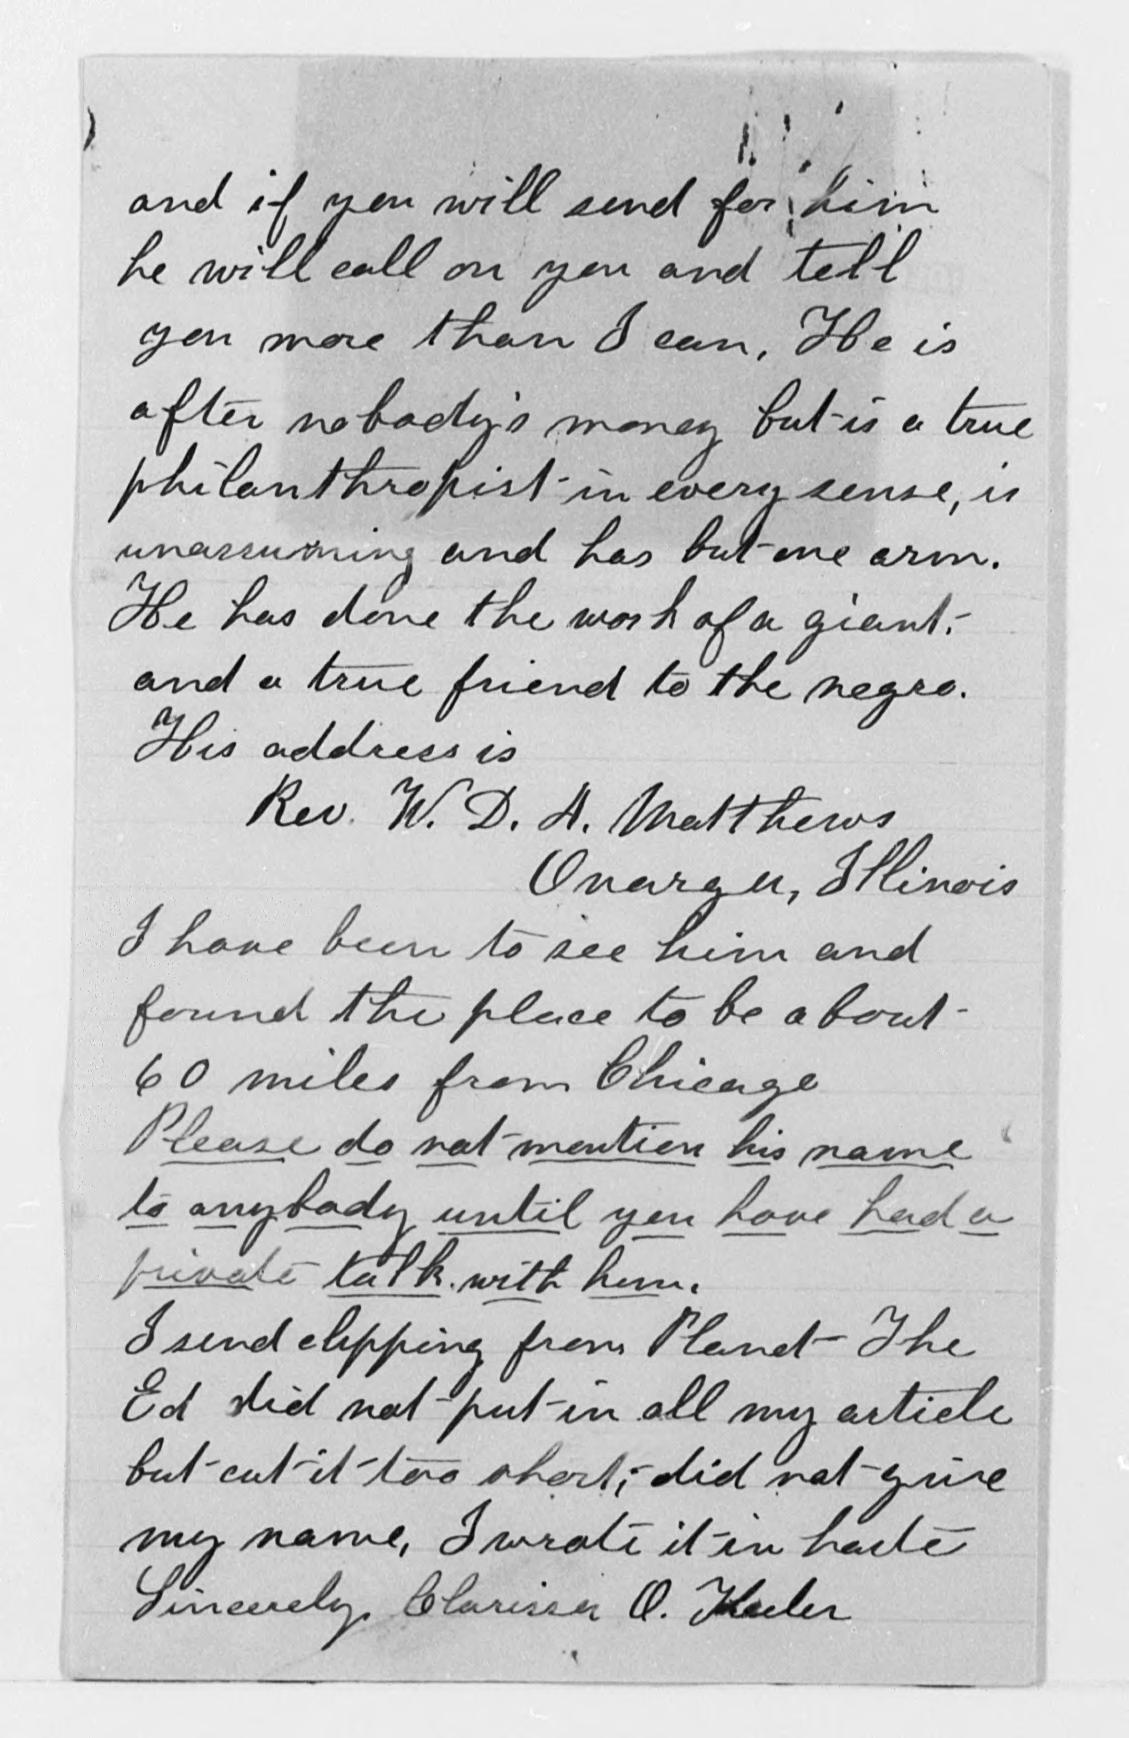 and if you will send for him
he will call on you and tell
you more than I can. He is
after nobody's money but is a true
philanthropist in every sense, is
unassuming and has but one arm.
He has done the work of a giant.
and a true friend to the negro.
His address is
Rev. W. D. A. Matthews
Onarga, Illinois
I have been to see him and
found the place to be about
60 miles from Chicago
Please do not mention his name
to anybody until you have had a
private talk with him.
I send clipping from Planet The
Ed did not put in all my article
but cut it too short; did not give
my name, I wrote it in haste
Sincerely, Clarissa O. Keeler